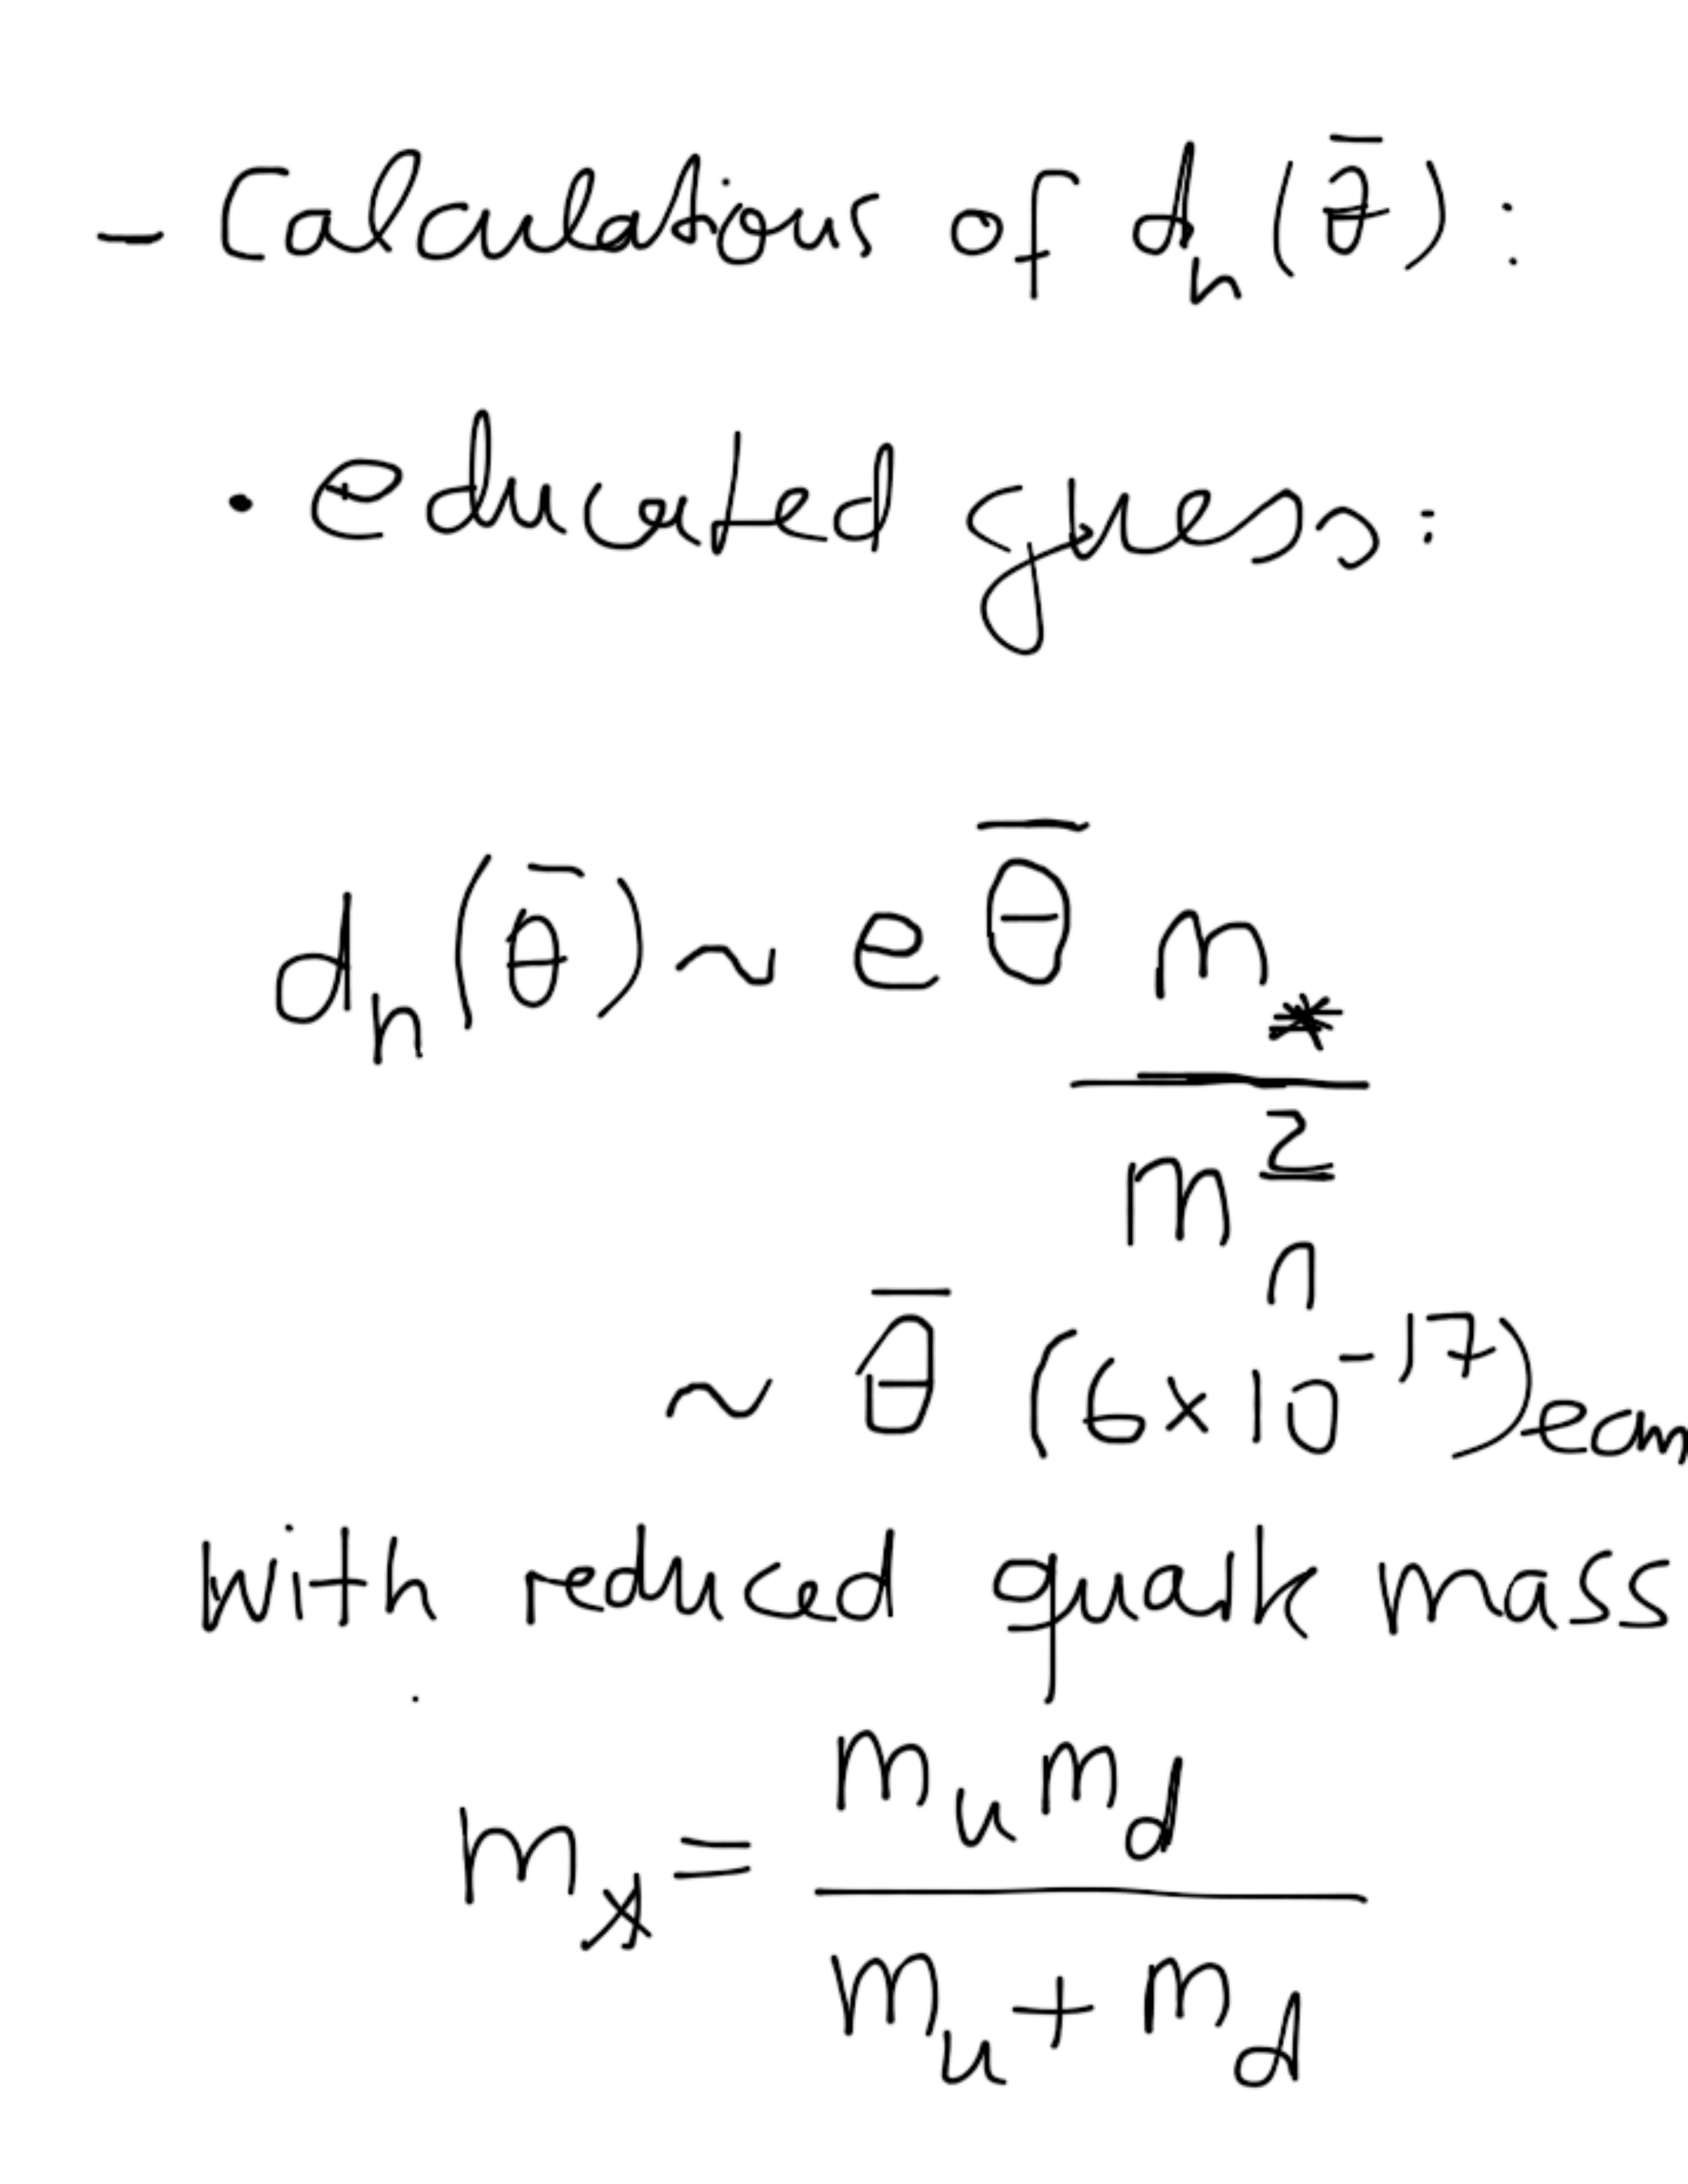 - Calculations of dₙ(θ̄):
• educated guess:
dₙ(θ̄) ~ e θ̄ m_* / mₙ²
~ θ̄ (6×10⁻¹⁷) ecm
with reduced quark mass
m_* = m_u m_d / (m_u + m_d)